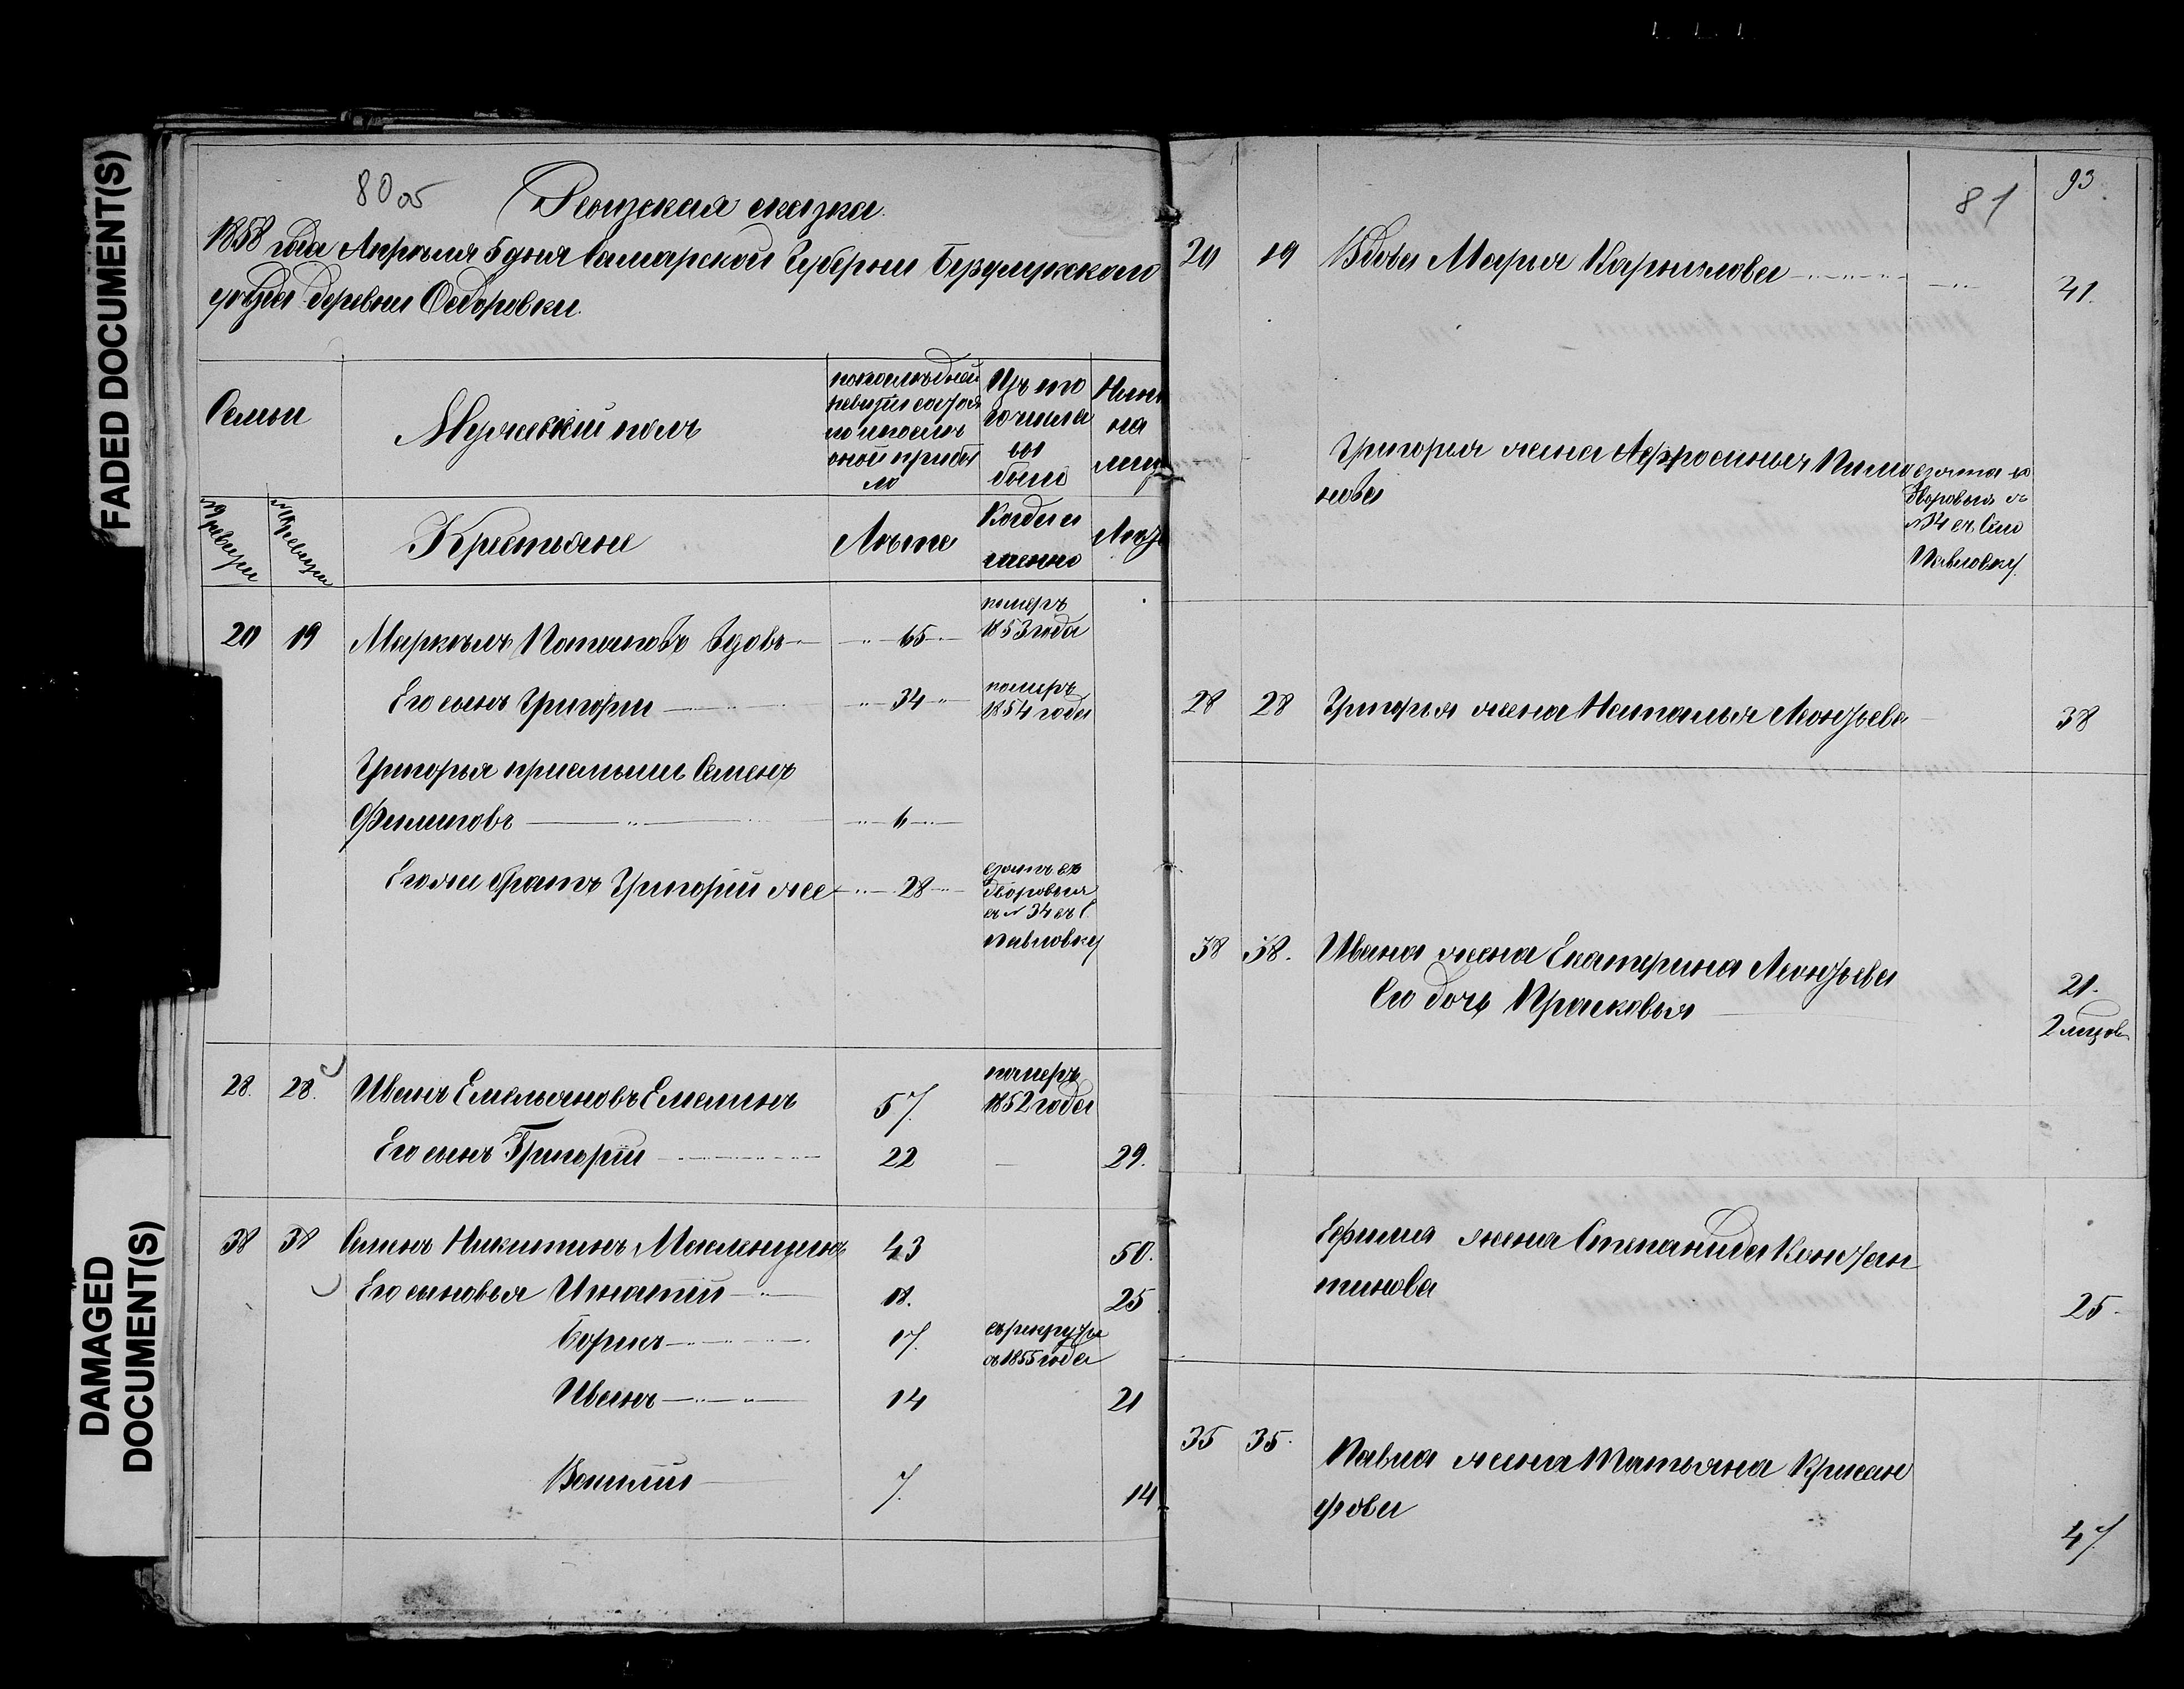 FADED DOCUMENT(S)
DAMAGED
DOCUMENT(S)
80 об
Ревизская сказка.
1858 года Апреля 5 дня Самарской Губернии Бузулукского
уезда деревни Федоровки.
Семьи
Мужеский полъ
По последней
ревизии состоя
ло и после
оной прибы
ло
Изъ того
числа
вы
было
Ныне
на
лицо
Крестьяне
Лета
Когда и
именно
Лета
20 19 Маркелъ Потаповъ Вдовъ 65 померъ
1853 года
Его сынъ Григорий 34 померъ
1854 года
Григорья приемышъ Семенъ
Филиповъ 6
Его же братъ Григорий же 28
дворовыя
съ № 34 въ С.
Павловку
28. 28. Иванъ Емельяновъ Емелинъ 57. померъ
1852 года
Его сынъ Григорий 22 29.
38 38 Семенъ Никитинъ 43 50.
Его сыновья Игнатий 18. 25
Борисъ 17. въ рекруты
въ 1855 года
Иванъ 14 21
Василий 7. 14
81
93
20 19 Вдова Марья Карнилова 41.
Григорья жена Афросинья Пимо
нова
дворовыя съ
№ 34 въ Село
Павловку
28 28 Григорья жена Наталья Леонтьева 38
38 38. Ивана жена Екатерина Леонтьева 21.
Его дочь Прасковья 2 месецов
Ефима жена Степанида Констан
тинова 25.
35 35. Павла жена Татьяна Крисан
фова 47.